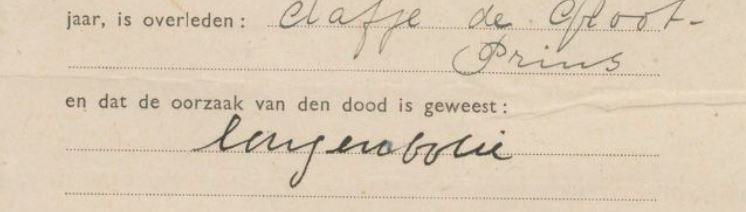 jaar, is overleden: Aafje de Groot-
Prins
en dat de oorzaak van den dood is geweest:
longembolie